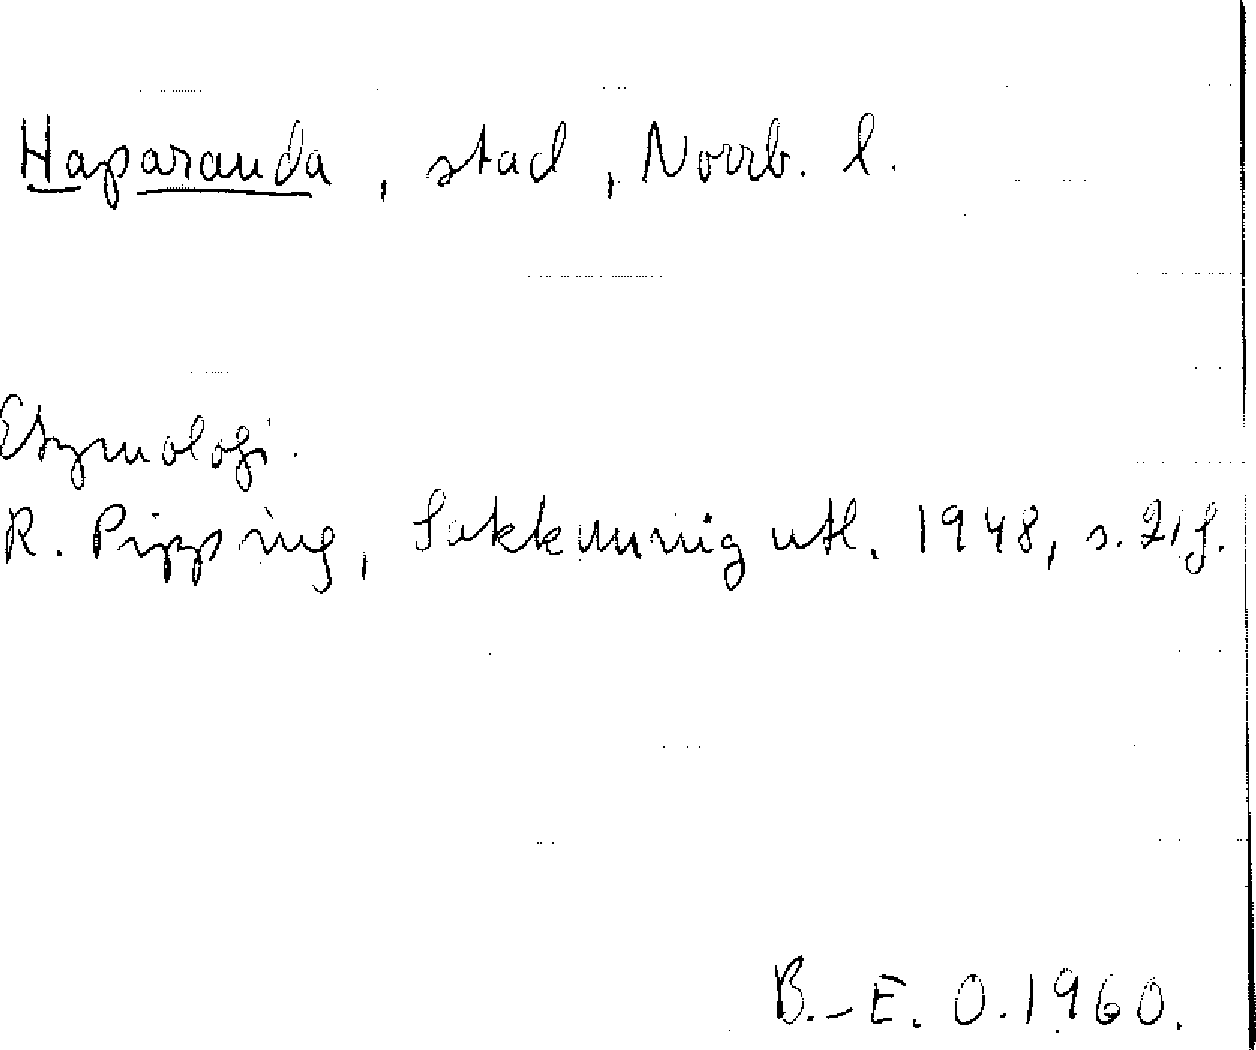 Haparanda, stad, Norrb. l.
Etymologi.
R. Pipping, Sakkunnig utl. 1948, s. 21f.
B.-E. O. 1960.